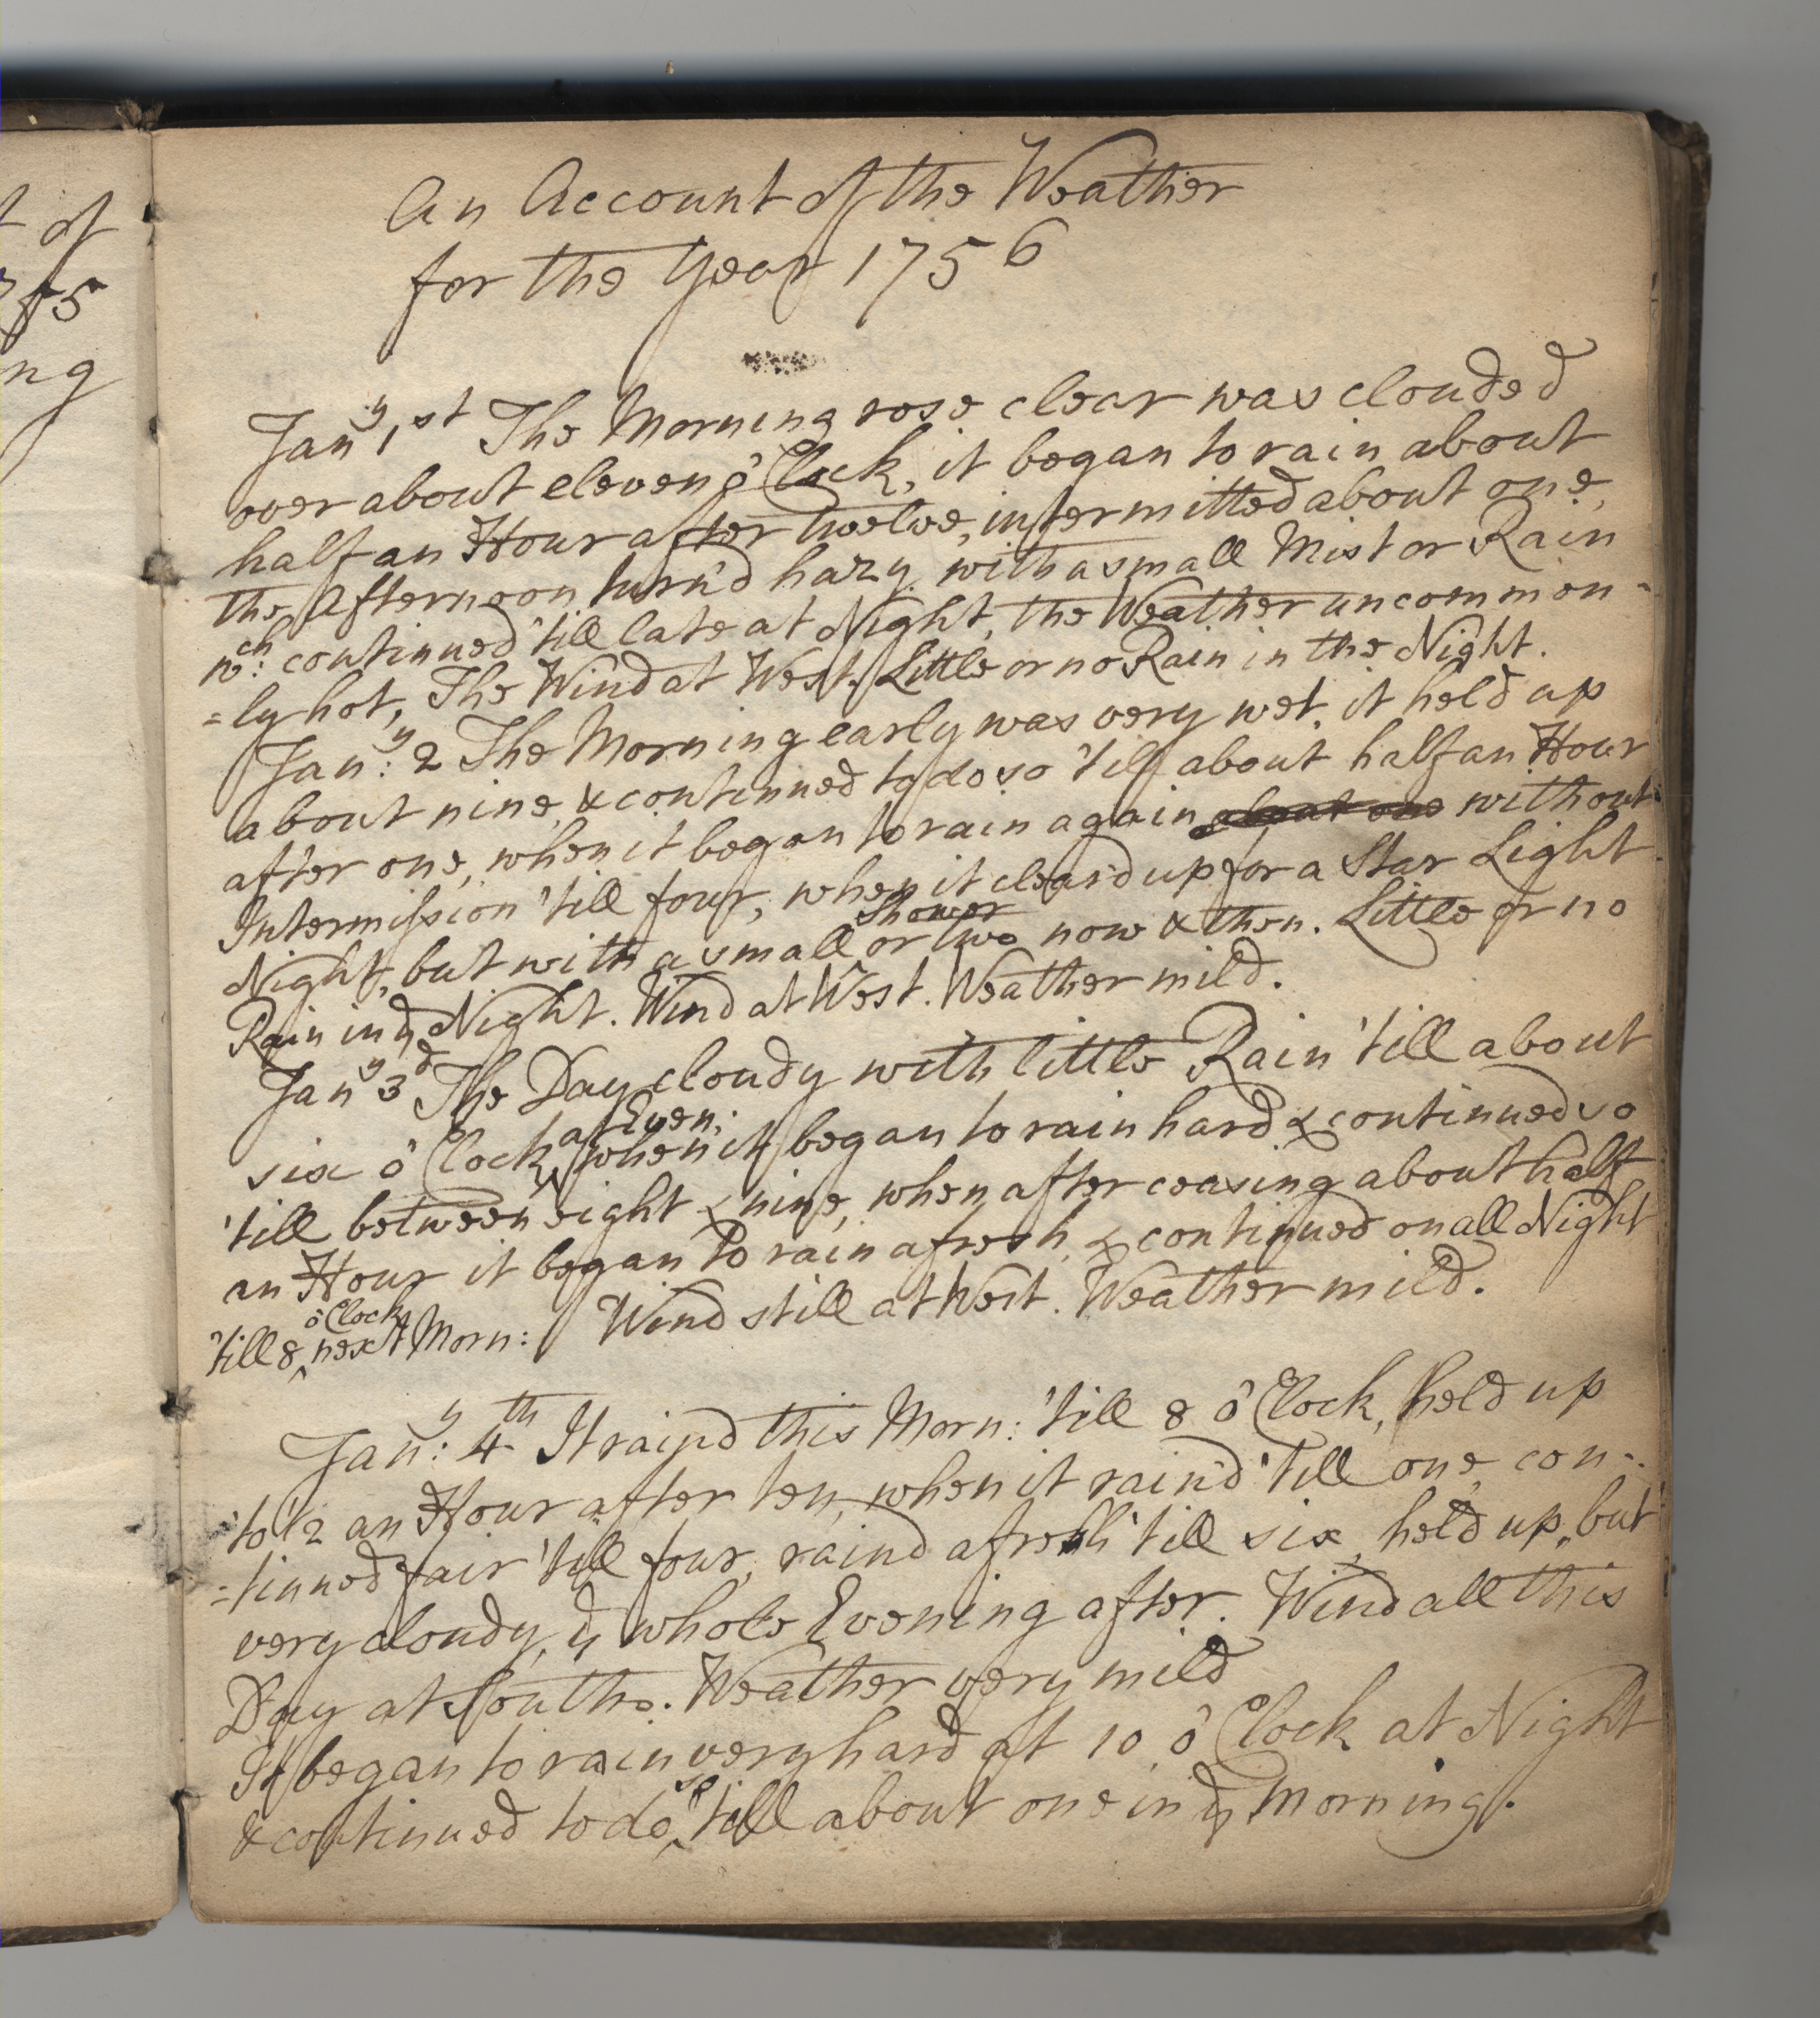 t of
75
ng
An Account of the Weather
for the Year 1756
Jan^y 1^st The Morning rose clear was clouded
over about eleven ô Clock, it began to rain about
half an Hour after twelve, intermitted about one,
the Afternoon turn'd hazy, with a small Mist or Rain
w^ch: continued 'till late at Night, the Weather uncommon-
=ly hot, The Wind at West. Little or no Rain in the Night.
Jan^y: 2 The Morning early was very wet, it held up
about nine, & continued to do so 'till about half an Hour
after one, when it began to rain again without
Intermission 'till four, when it clear'd up for a Star Light
Night, but with a small Shower or two now & then. Little or no
Rain in y^e Night. Wind at West. Weather mild.
Jan^y 3^d The Day cloudy with little Rain 'till about
six ô Clock at Even: when it began to rain hard & continued so
'till between eight & nine, when after ceasing about half
an Hour it began to rain afresh, & continued on all Night
'till 8 ô Clock next Morn: Wind still at West. Weather mild.
Jan^y: 4^th It rain'd this Morn: 'till 8 ô Clock, held up
'to 1/2 an Hour after ten, when it rain'd 'till one, con-
=tinued fair 'till four, rain'd afresh 'till six, held up, but
very cloudy, y^e whole Evening after. Wind all this
Day at South. Weather very mild
It began to rain very hard at 10 ô Clock at Night
& continued to do so 'till about one in y^e Morning.